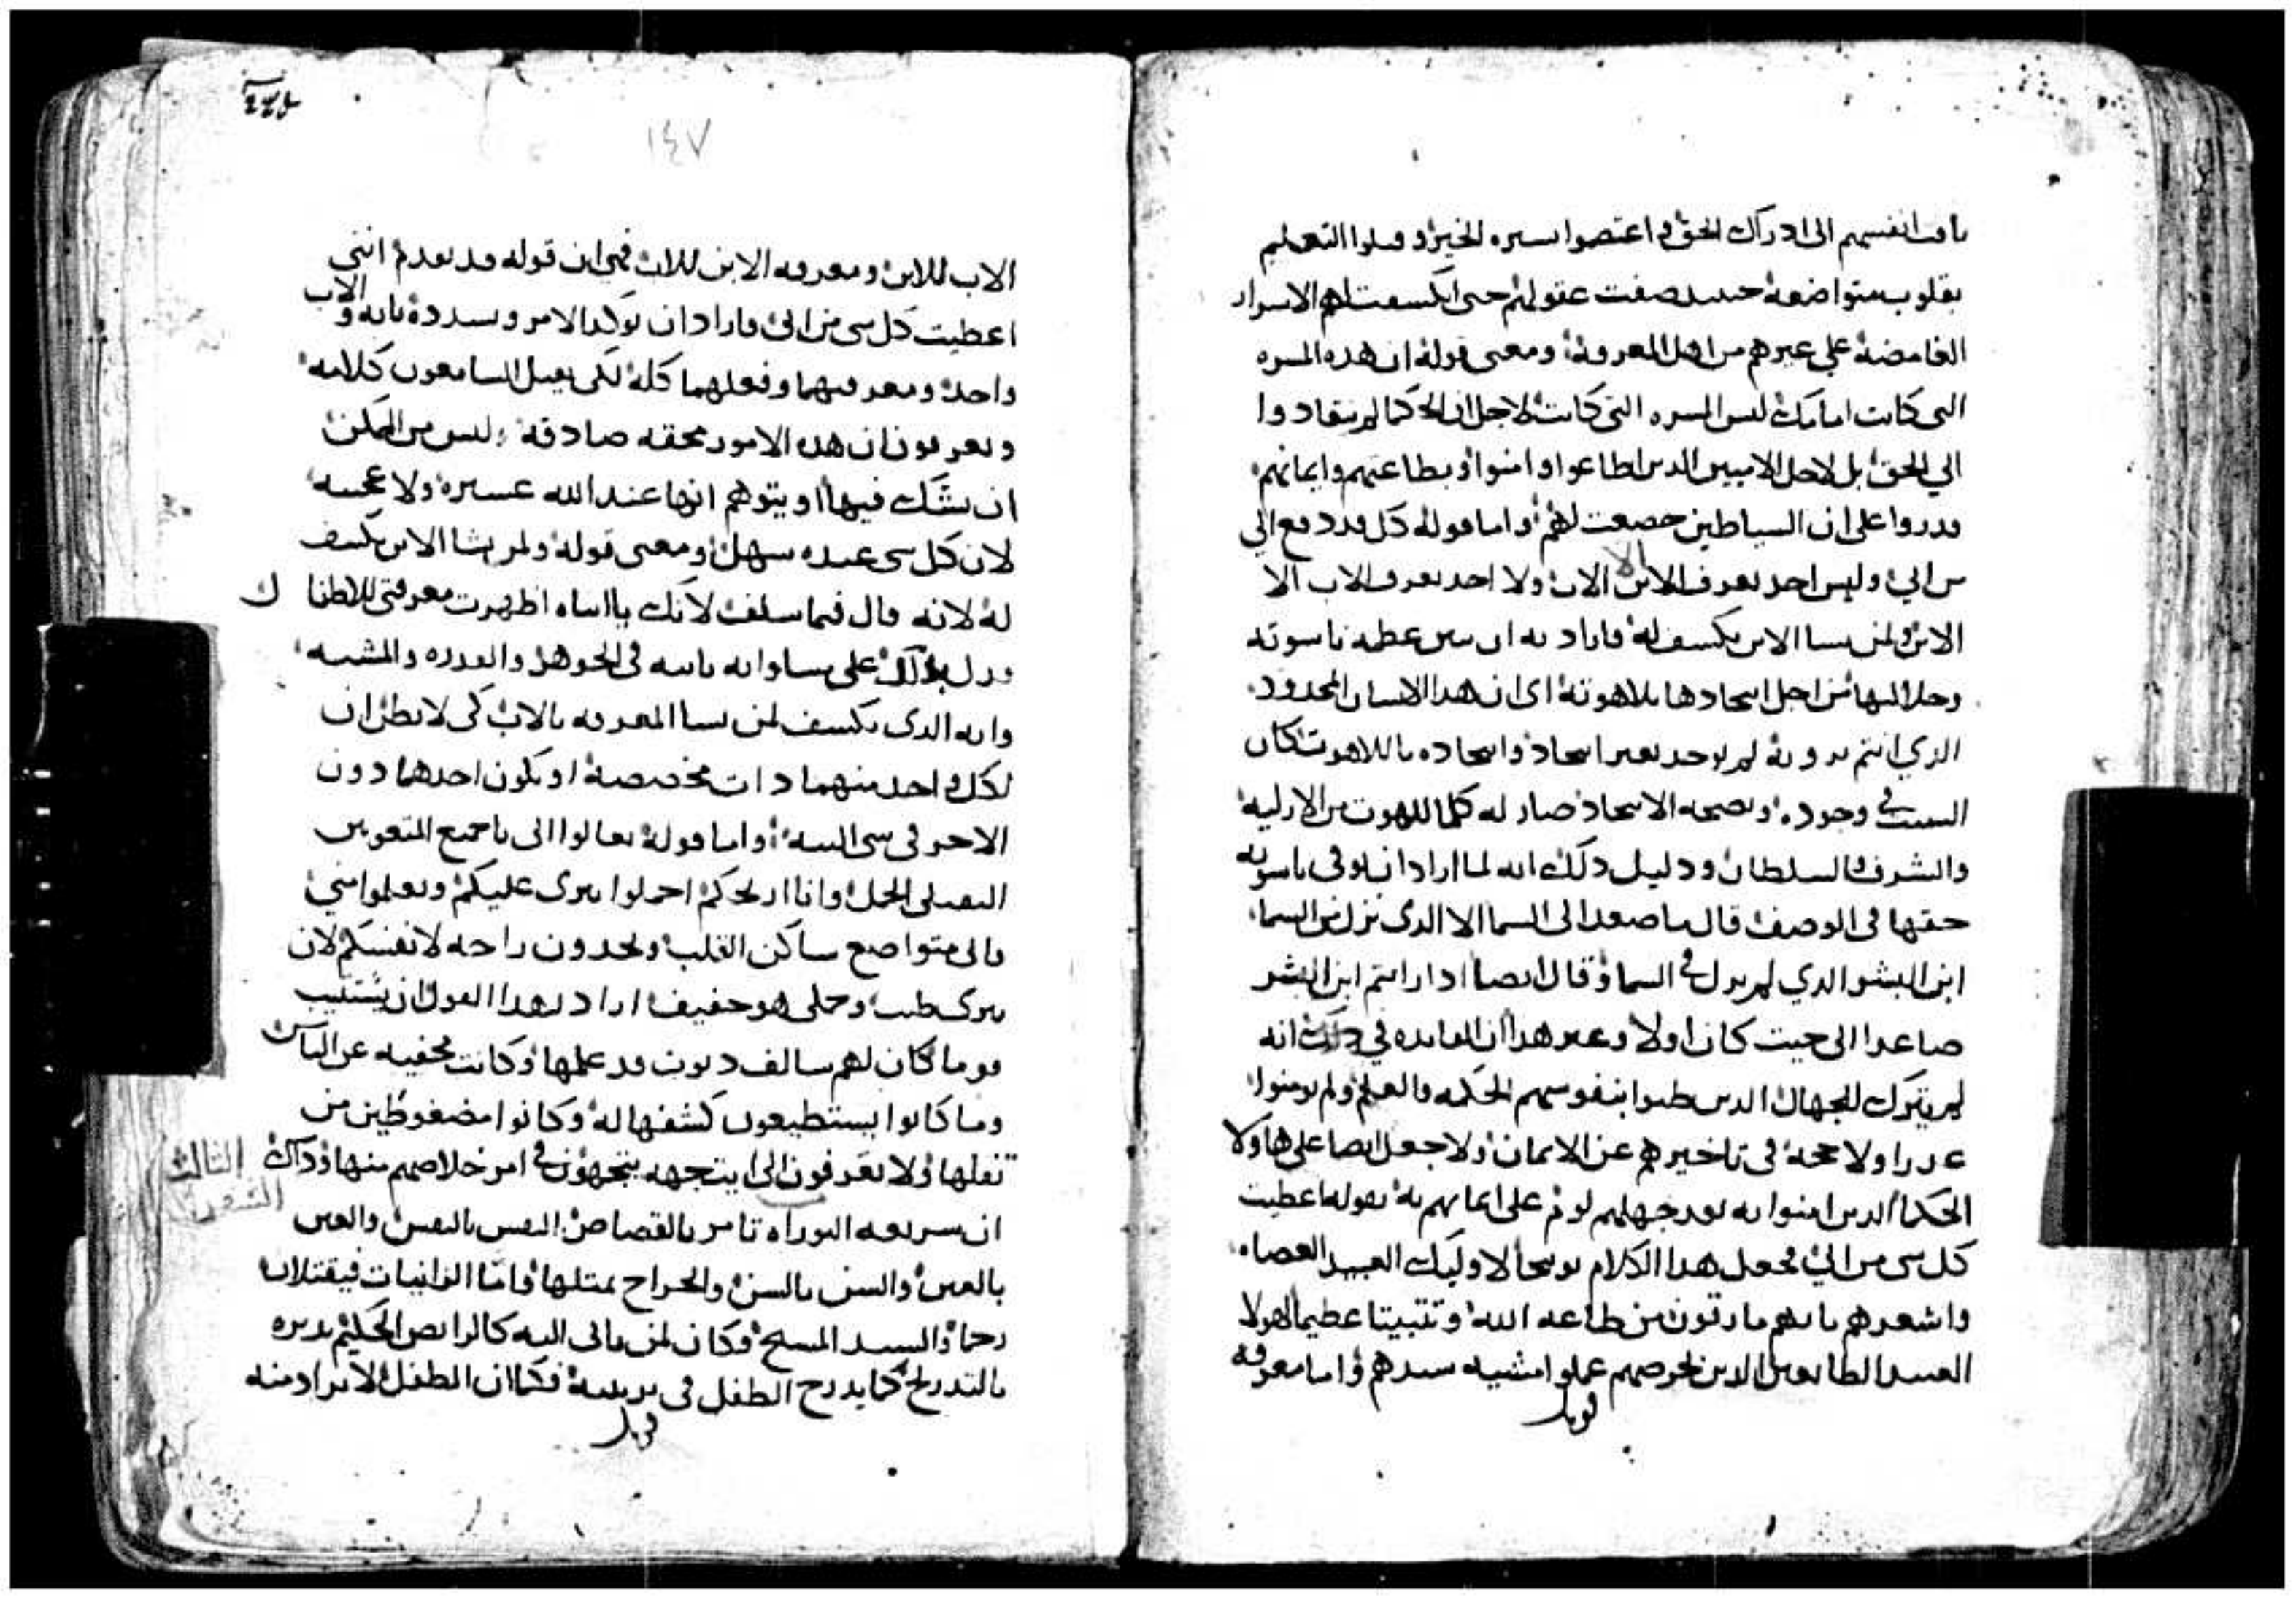 انفسهم الى ادراك الحق واعتصوا بسيره الخير وقبلوا التعليم
بقلوب متواضعة حينيد صفت عقولهم حتى انكسفت لهم الاسرار
الغامضة علي غيرهم من اهل المعرفة ومعنى قوله ان هده المسره
التى كانت امامك ليس المسره التي كانت لاجل ان الحكما لم ينقادوا
الي الحق بل لاجل الاميين الدين اطاعوا وامنوا وبطاعتهم وايمانهم
قدروا على ان السياطين خضعت لهم واما قوله كل قد دفع الي
من ابي وليس احد يعرف الابن الا الاب ولا احد يعرف الاب الا
الابن ولمن يسا الابن يكسف له فاراد به ان يبين عظمه ناسوته
وجلالتها من اجل اتحادها بلاهوته اى ان هدا الانسان المحدود
الدي انتم تروه لم يوجد بغير اتحاد واتحاده باللاهوت كان
السبب في وجوده وبصحه الاتحاد صار له كلما للاهوت من الازلية
والشرف والسلطان ودليل دلك انه لما اراد ان يوفى ناسوته
حقها في الوصف قال ما صعد الى السما الا الدى نزل من السما
ابن البشر الدي لم يزل في السما وقال ايضا ادا رايتم ابن البشر
صاعدا الى حيت كان اولا وغير هدا ان الفايده في دلك انه
لم يترك للجهال الدين ظنوا بنفوسهم الحكمه والعلم ولم يومنوا
عدرا ولا حجة في تاخيرهم عن الايمان ولا جعل ايضا على هاولا
الحكما الدين امنوا به بعد جهلهم لوم على ايمانهم به بقوله اعطيت
كل سى من ابي فجعل هدا الكلام توبيخا لاوليك العبيد العصاه
واشعرهم بانهم مارقون من طاعه الله وتتبيتا عظيما لهولا
العبيد الطايعين الدين لحرصهم عملوا مشيه سيدهم واما معرفه
قوبل
١٤٧
الاب للابن ومعرفه الابن للاب فهي ان قوله قد تقدم انني
اعطيت كل سى من ابي فاراد ان يوكد الامر ويسدده بانه والاب
واحد ومعرفتهما وفعلهما كله لكى يقبل السامعون كلامه
ويعرفون ان هده الامور محققه صادقة وليس من الممكن
ان يشك فيها او يتوهم انها عند الله عسيره ولا عجيبه
لان كل سى عنده سهل ومعنى قوله ولمن يشا الابن يكسف
له لانه قال فيما سلف لانك يا ابتاه اظهرت معرفتى للاطفال
فدل بدلك على مساواته بابيه في الجوهر والقدره والمشيه
وانه الدى يكسف لمن يسا المعرفه بالاب كى لا يظن ان
لكل واحد منهما دات مخصصة او يكون احدهما دون
الاخر فى سى البته واما قوله تعالوا الى يا جميع المتعوبين
التقيلى الحمل وانا اريحكم احملوا نيرى عليكم وتعلموا مني
فانى متواضع ساكن القلب وتجدون راحه لانفسكم لان
نيرى طيب وحملى هو خفيف اراد بهدا القول ان يستتيب
قوما كان لهم سالف ديون قد عملها وكانت مخفيه عن الناس
وما كانوا يستطيعون كشفها له وكانوا مضغوطين من
تقلها ولا يعرفون الى اي جهه يتجهون في امر خلاصهم منها وداك
ان سريعه التوراه تامر بالقصاص النفس بالنفس والعين
بالعين والسن بالسن والجراح بمتلها واما الزانيات فيقتلان
رجما والسيد المسيح فكان لمن ياتى اليه كالرايض الحكيم يدبره
بالتدريج كما يدرج الطفل فى تربيته فكما ان الطفل لا يراد منه
قوبل
الثالث